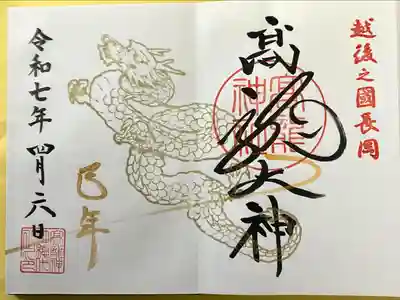 越後之國長岡
髙龍大神
高龍神社
巳年
令和七年 四月六日